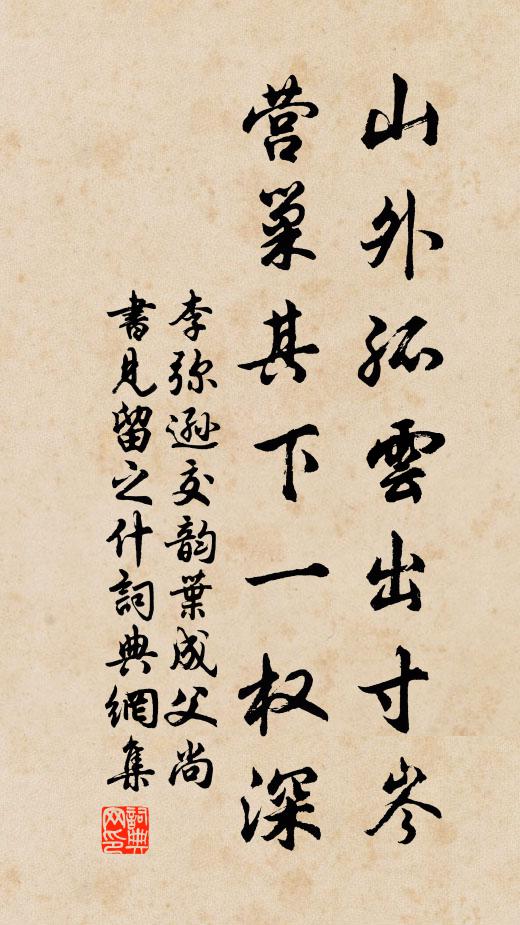 山外孤雲出寸岑
营巢其下一权深
李弥遜交韵葉成父尚
書見留之什詞典網集
詞典网印